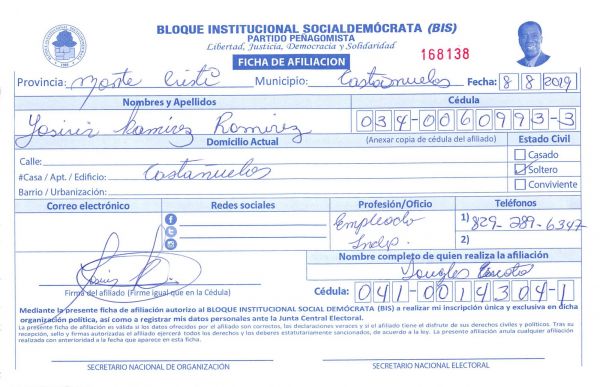 BLOQUE INSTITUCIONAL SOCIALDEMÓCRATA (BIS)
PARTIDO PEÑAGOMISTA
Libertad, Justicia, Democracia y Solidaridad
FICHA DE AFILIACION
168138
Provincia: Monte Cristi Municipio: Castañuelos Fecha: 8 8 2019
Nombres y Apellidos Cédula
Ramirez Ramirez 034-0060993-3
Domicilio Actual (Anexar copia de cédula del afiliado) Estado Civil
Calle: Casado
#Casa / Apt. / Edificio: Castañuelos Soltero
Barrio / Urbanización: Conviviente
Correo electrónico Redes sociales Profesión/Oficio Teléfonos
Empleado 1) 829-289-6347
Indep. 2)
Nombre completo de quien realiza la afiliación
Firma del afiliado (Firme igual que en la Cédula) Cédula: 041-0014304-1
Mediante la presente ficha de afiliación autorizo al BLOQUE INSTITUCIONAL SOCIAL DEMÓCRATA (BIS) a realizar mi inscripción única y exclusiva en dicha
organización política, así como a registrar mis datos personales ante la Junta Central Electoral.
La presente ficha de afiliación es válida si los datos ofrecidos por el afiliado son correctos, las declaraciones veraces y si el afiliado tiene el disfrute de sus derechos civiles y políticos. Tras su
recepción, sello y firmas autorizadas el afiliado ejercerá todos los derechos y los deberes estatutariamente sancionados, de acuerdo a la ley. La presente afiliación anula cualquier afiliación
realizada con anterioridad a la fecha que aparece en esta ficha.
SECRETARIO NACIONAL DE ORGANIZACIÓN SECRETARIO NACIONAL ELECTORAL